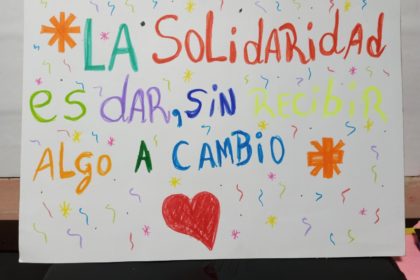 LA SOLIDARIDAD
es DAR, SIN RECIBIR
ALGO A CAMBIO